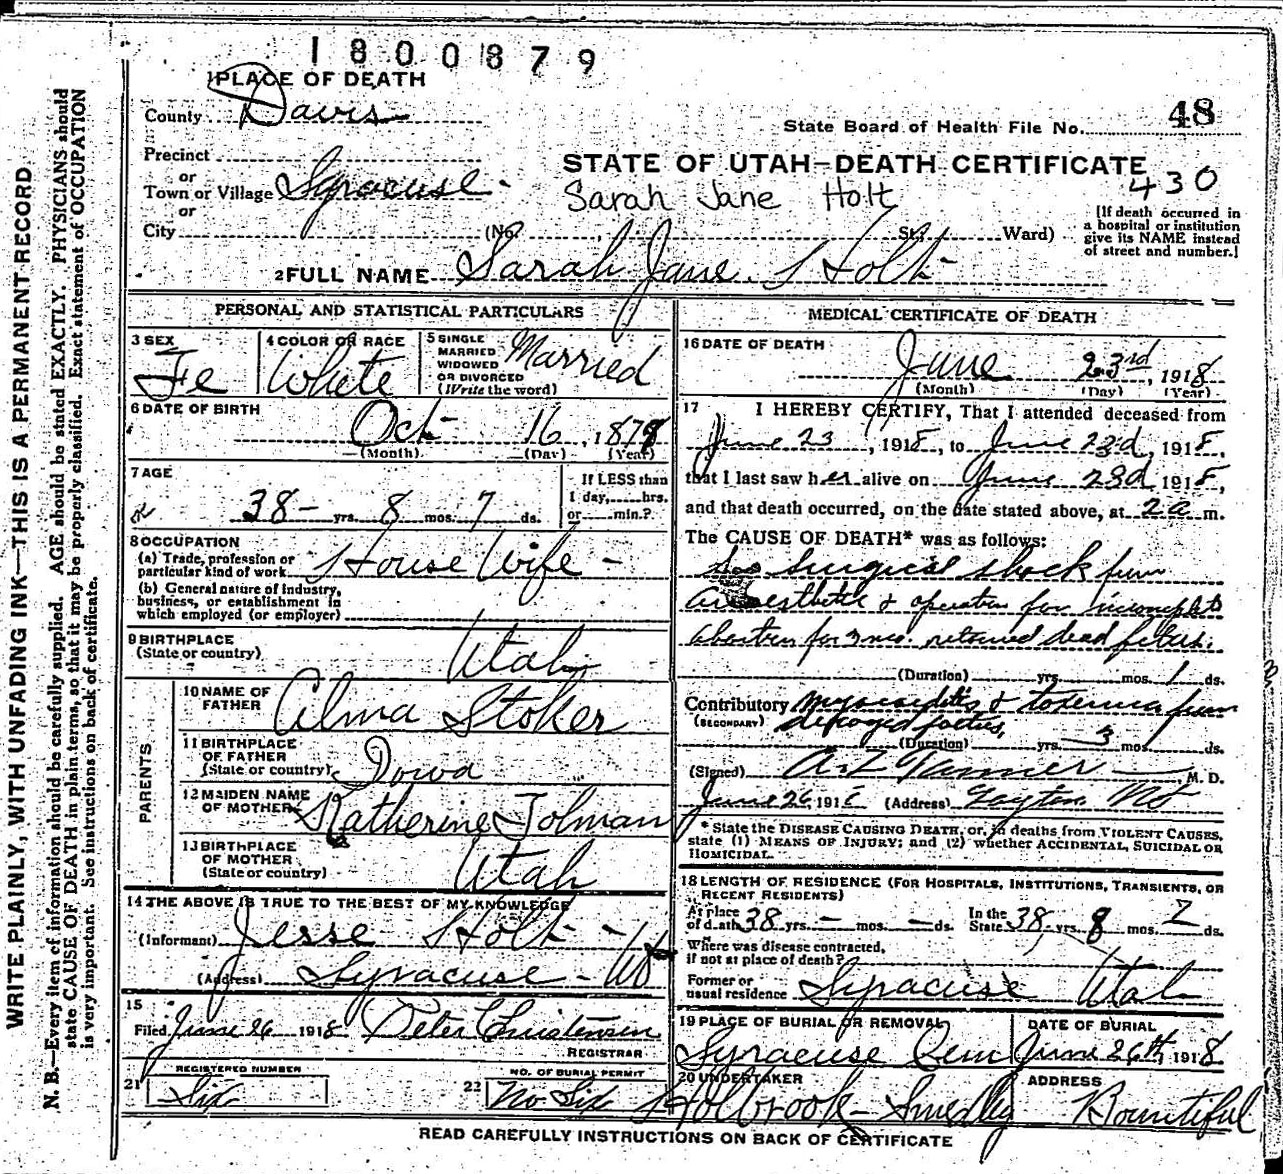 1800879
1 PLACE OF DEATH
County Davis
48
State Board of Health File No.
Precinct
or
STATE OF UTAH—DEATH CERTIFICATE
Town or Village Syracuse -
Sarah Jane Holt
430
or
City (No. , St.; Ward)
[If death occurred in
a hospital or institution
give its NAME instead
of street and number.]
2 FULL NAME Sarah Jane Holt
PERSONAL AND STATISTICAL PARTICULARS
3 SEX
Fe
4 COLOR OR RACE
White
5 SINGLE
MARRIED
WIDOWED
OR DIVORCED
(Write the word)
Married
6 DATE OF BIRTH
Oct 16, 1879
(Month) (Day) (Year)
7 AGE
38 - yrs. 8 mos. 7 ds.
If LESS than
1 day, hrs.
or min.?
8 OCCUPATION
(a) Trade, profession or
particular kind of work House Wife -
(b) General nature of industry,
business, or establishment in
which employed (or employer)
9 BIRTHPLACE
(State or country) Utah
PARENTS
10 NAME OF
FATHER Alma Stoker
11 BIRTHPLACE
OF FATHER
(State or country) Iowa
12 MAIDEN NAME
OF MOTHER Katherine Tolman
13 BIRTHPLACE
OF MOTHER
(State or country) Utah
14 THE ABOVE IS TRUE TO THE BEST OF MY KNOWLEDGE
(Informant) Jesse Holt -
(Address) Syracuse - Ut
15
Filed June 26 1918 Peter Christensen
REGISTRAR
REGISTERED NUMBER
21 Six
NO. OF BURIAL PERMIT
22 No Six
MEDICAL CERTIFICATE OF DEATH
16 DATE OF DEATH
June 23rd, 1918
(Month) (Day) (Year)
17 I HEREBY CERTIFY, That I attended deceased from
June 23, 1918, to June 23d, 1918,
that I last saw her alive on June 23d 1918,
and that death occurred, on the date stated above, at 2 a m.
The CAUSE OF DEATH* was as follows:
Surgical shock from
anaesthetic & operation for incomplete
abortion for 3 mo. retained dead fetus.
(Duration) yrs. mos. 1 ds.
Contributory myocarditis & toxemia from
(SECONDARY) decayed foetus,
(Duration) yrs. 3 mos. ds.
(Signed) Tanner, M. D.
June 26 1918 (Address) Layton
* State the DISEASE CAUSING DEATH, or, in deaths from VIOLENT CAUSES,
state (1) MEANS OF INJURY; and (2) whether ACCIDENTAL, SUICIDAL OR
HOMICIDAL.
18 LENGTH OF RESIDENCE (FOR HOSPITALS, INSTITUTIONS, TRANSIENTS, OR
RECENT RESIDENTS)
At place
of death 38 yrs. - mos. - ds.
In the
State 38 yrs. 8 mos. 7 ds.
Where was disease contracted,
if not at place of death?
Former or
usual residence Syracuse Utah
19 PLACE OF BURIAL OR REMOVAL
Syracuse Cem
DATE OF BURIAL
June 26th, 1918
20 UNDERTAKER
Holbrook - Smedley
ADDRESS
Bountiful
READ CAREFULLY INSTRUCTIONS ON BACK OF CERTIFICATE
WRITE PLAINLY, WITH UNFADING INK—THIS IS A PERMANENT RECORD
N. B.—Every item of information should be carefully supplied. AGE should be stated EXACTLY. PHYSICIANS should
state CAUSE OF DEATH in plain terms, so that it may be properly classified. Exact statement of OCCUPATION
is very important. See instructions on back of certificate.